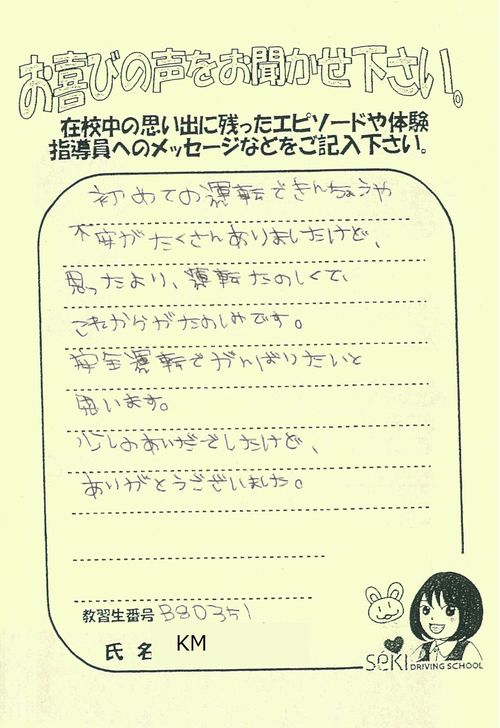 お喜びの声をお聞かせ下さい。
在校中の思い出に残ったエピソードや体験
指導員へのメッセージなどをご記入下さい。
初めての運転できんちょうや
不安がたくさんありましたけど、
思ったより、運転たのしくて、
これからがたのしみです。
安全運転でがんばりたいと
思います。
少しのあいだでしたけど、
ありがとうございました。
教習生番号 B80351
氏名 KM
SEKI DRIVING SCHOOL